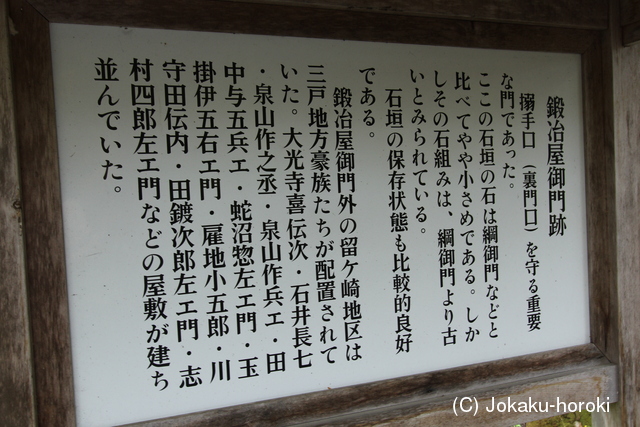 鍛冶屋御門跡
搦手口（裏門口）を守る重要
な門であった。
ここの石垣の石は綱御門などと
比べてやや小さめである。しか
しその石組みは、綱御門より古
いとみられている。
石垣の保存状態も比較的良好
である。
鍛冶屋御門外の留ケ崎地区は
三戸地方豪族たちが配置されて
いた。大光寺喜伝次・石井長七
・泉山作之丞・泉山作兵エ・田
中与五兵エ・蛇沼惣左エ門・玉
掛伊五右エ門・雇地小五郎・川
守田伝内・田鍍次郎左エ門・志
村四郎左エ門などの屋敷が建ち
並んでいた。
(C) Jokaku-horoki